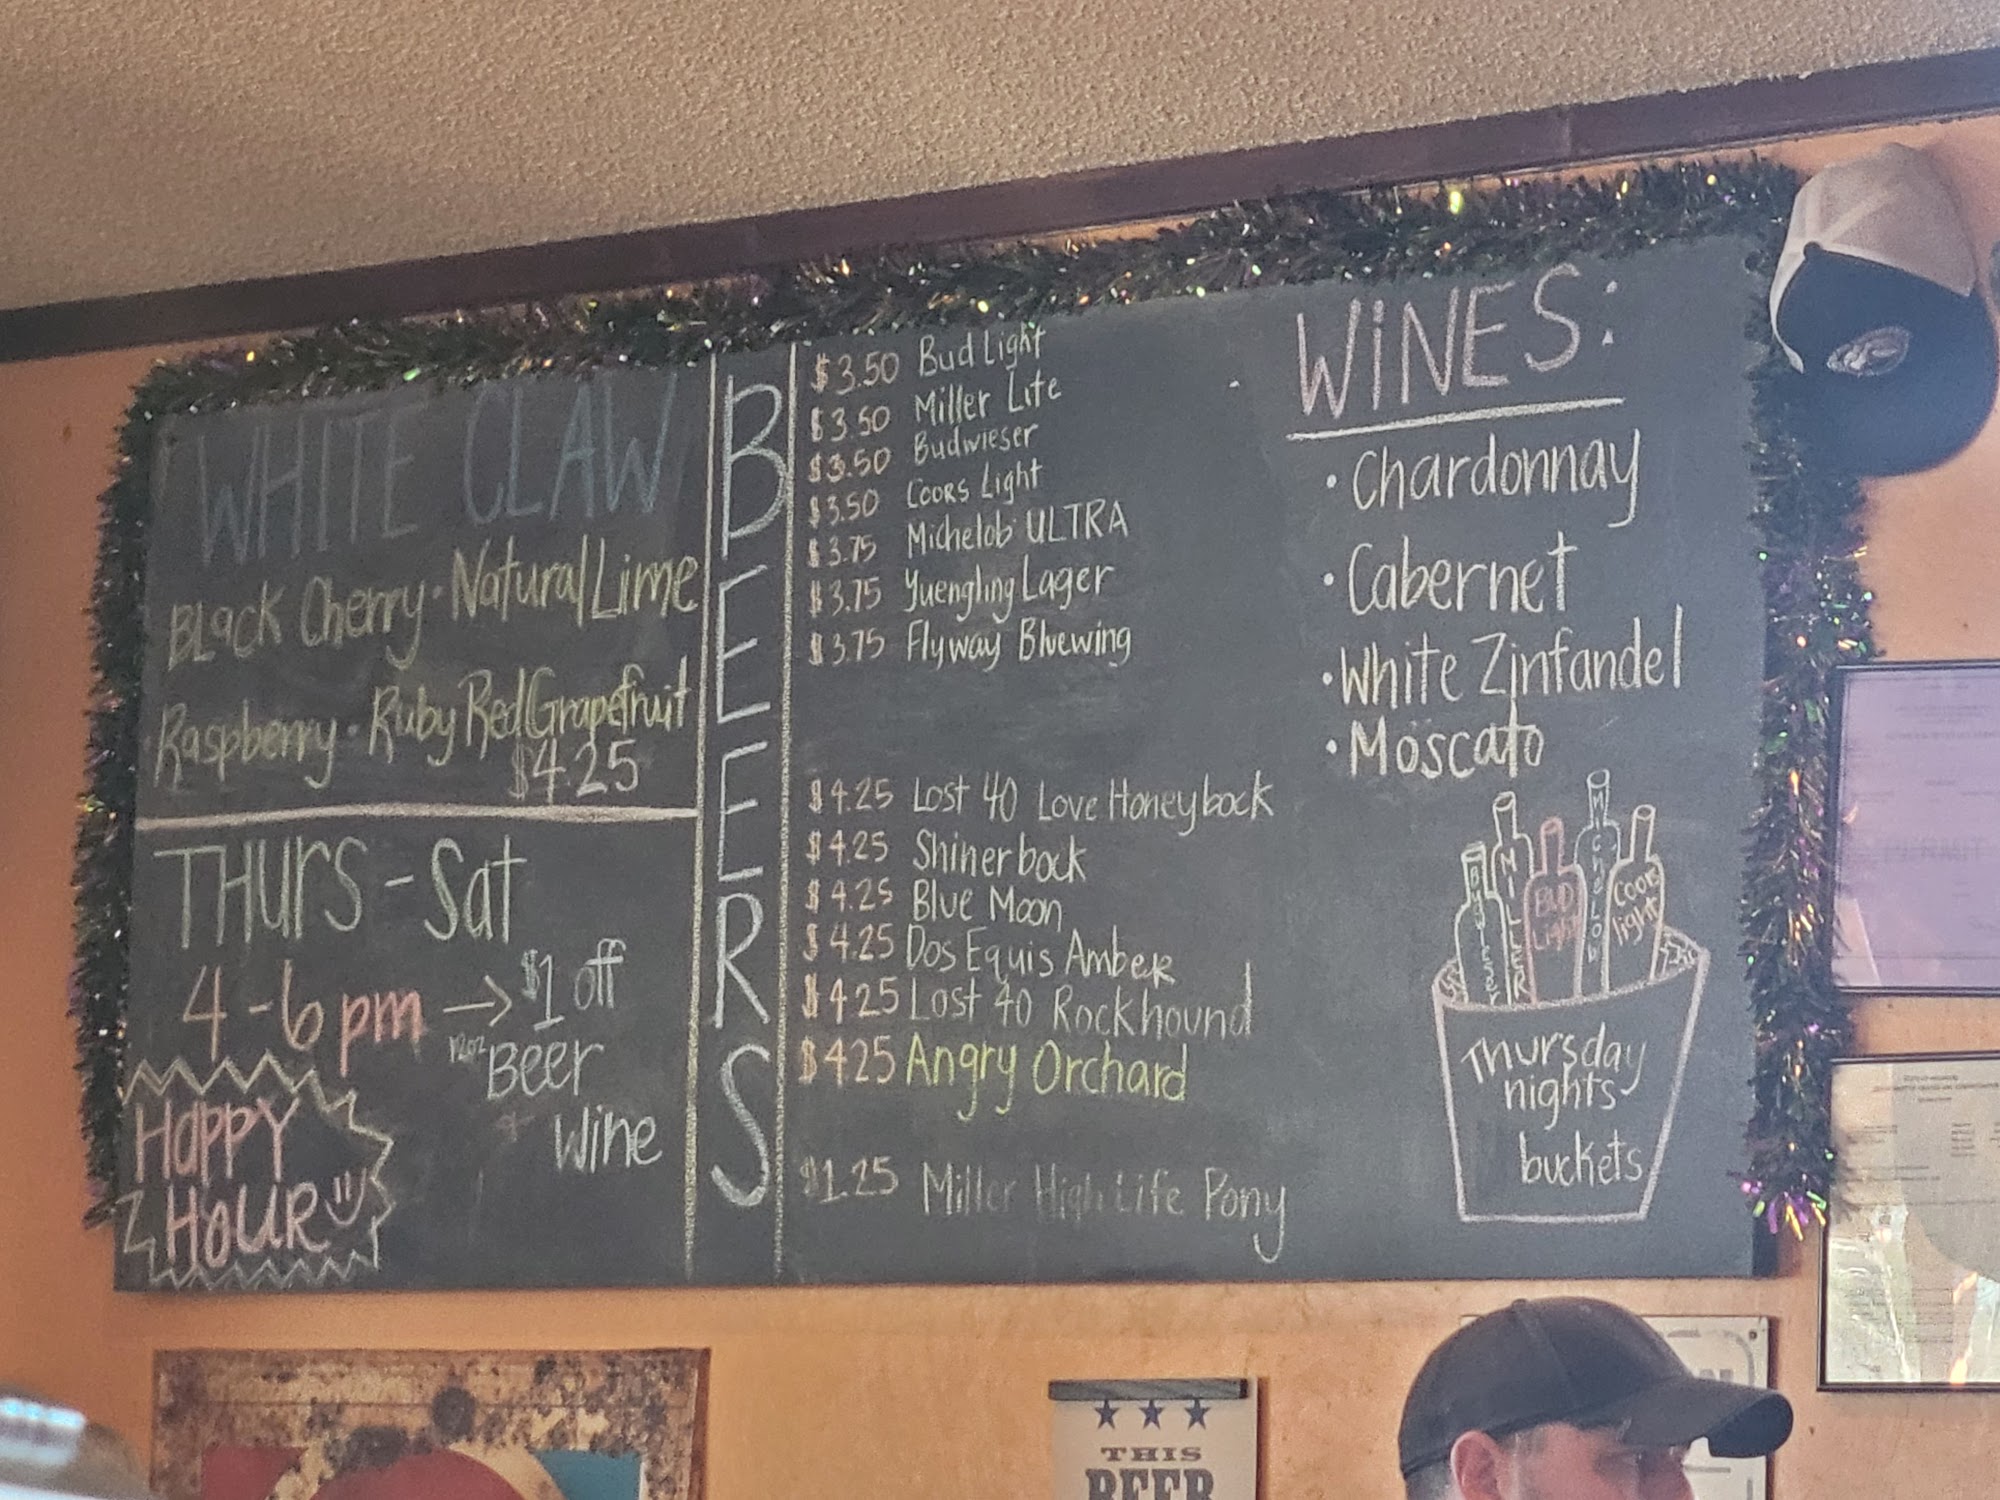 WHITE CLAW
BLack Cherry · Natural Lime
Raspberry · Ruby Red Grapefruit
$4.25
THURS - Sat
4 - 6 pm → $1 off
12oz Beer
+ Wine
HAPPY
HOUR
BEERS
$3.50 Bud Light
$3.50 Miller Lite
$3.50 Budwieser
$3.50 Coors Light
$3.75 Michelob ULTRA
$3.75 Yuengling Lager
$3.75 Flyway Bluewing
$4.25 Lost 40 Love Honeybock
$4.25 Shinerbock
$4.25 Blue Moon
$4.25 Dos Equis Amber
$4.25 Lost 40 Rockhound
$425 Angry Orchard
$1.25 Miller High Life Pony
WiNES:
· Chardonnay
· Cabernet
· White Zinfandel
· Moscato
Budwieser
MILLER
BUD Light
Michelob
Coors light
Thursday
nights
buckets
THIS
BEER